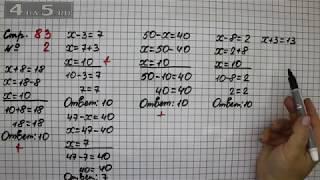 4APOK.RU
Стр. 83
№ 2
x+8=18
x=18-8
x=10
10+8=18
18=18
Ответ:10
+
x-3=7
x=7+3
x=10 +
10-3=7
7=7
Ответ:10
47-x=40
x=47-40
x=7
47-7=40
40=40
Ответ:7
50-x=40
x=50-40
x=10
50-10=40
40=40
Ответ:10
+
x-8=2
x=2+8
x=10
10-8=2
2=2
Ответ:10
x+3=13